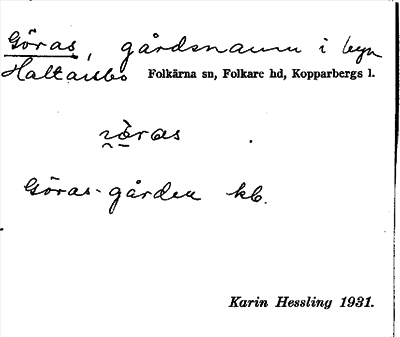 Göras, gårdsnamn i byn
Haltarsbo Folkärna sn, Folkare hd, Kopparbergs l.
Göras-gården kb.
Karin Hessling 1931.